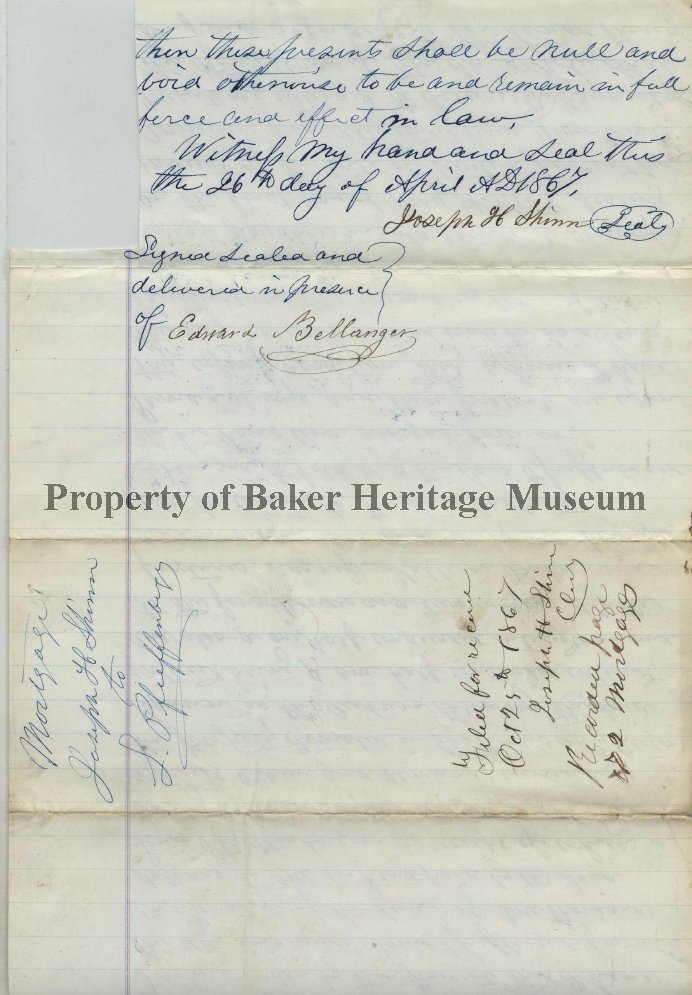 then these presents shall be null and
void otherwise to be and remain in full
force and effect in law.
Witness my hand and seal this
the 26th day of April AD 1867.
Joseph H Shinn Seal
Signed sealed and
delivered in presence
of Edward Bellanger
Property of Baker Heritage Museum
Mortgage
Joseph H Shinn
to
L. Pfeffenberg
Filed for
Oct 25th 1867
Joseph H Shinn
Recorded page
2 Mortgage